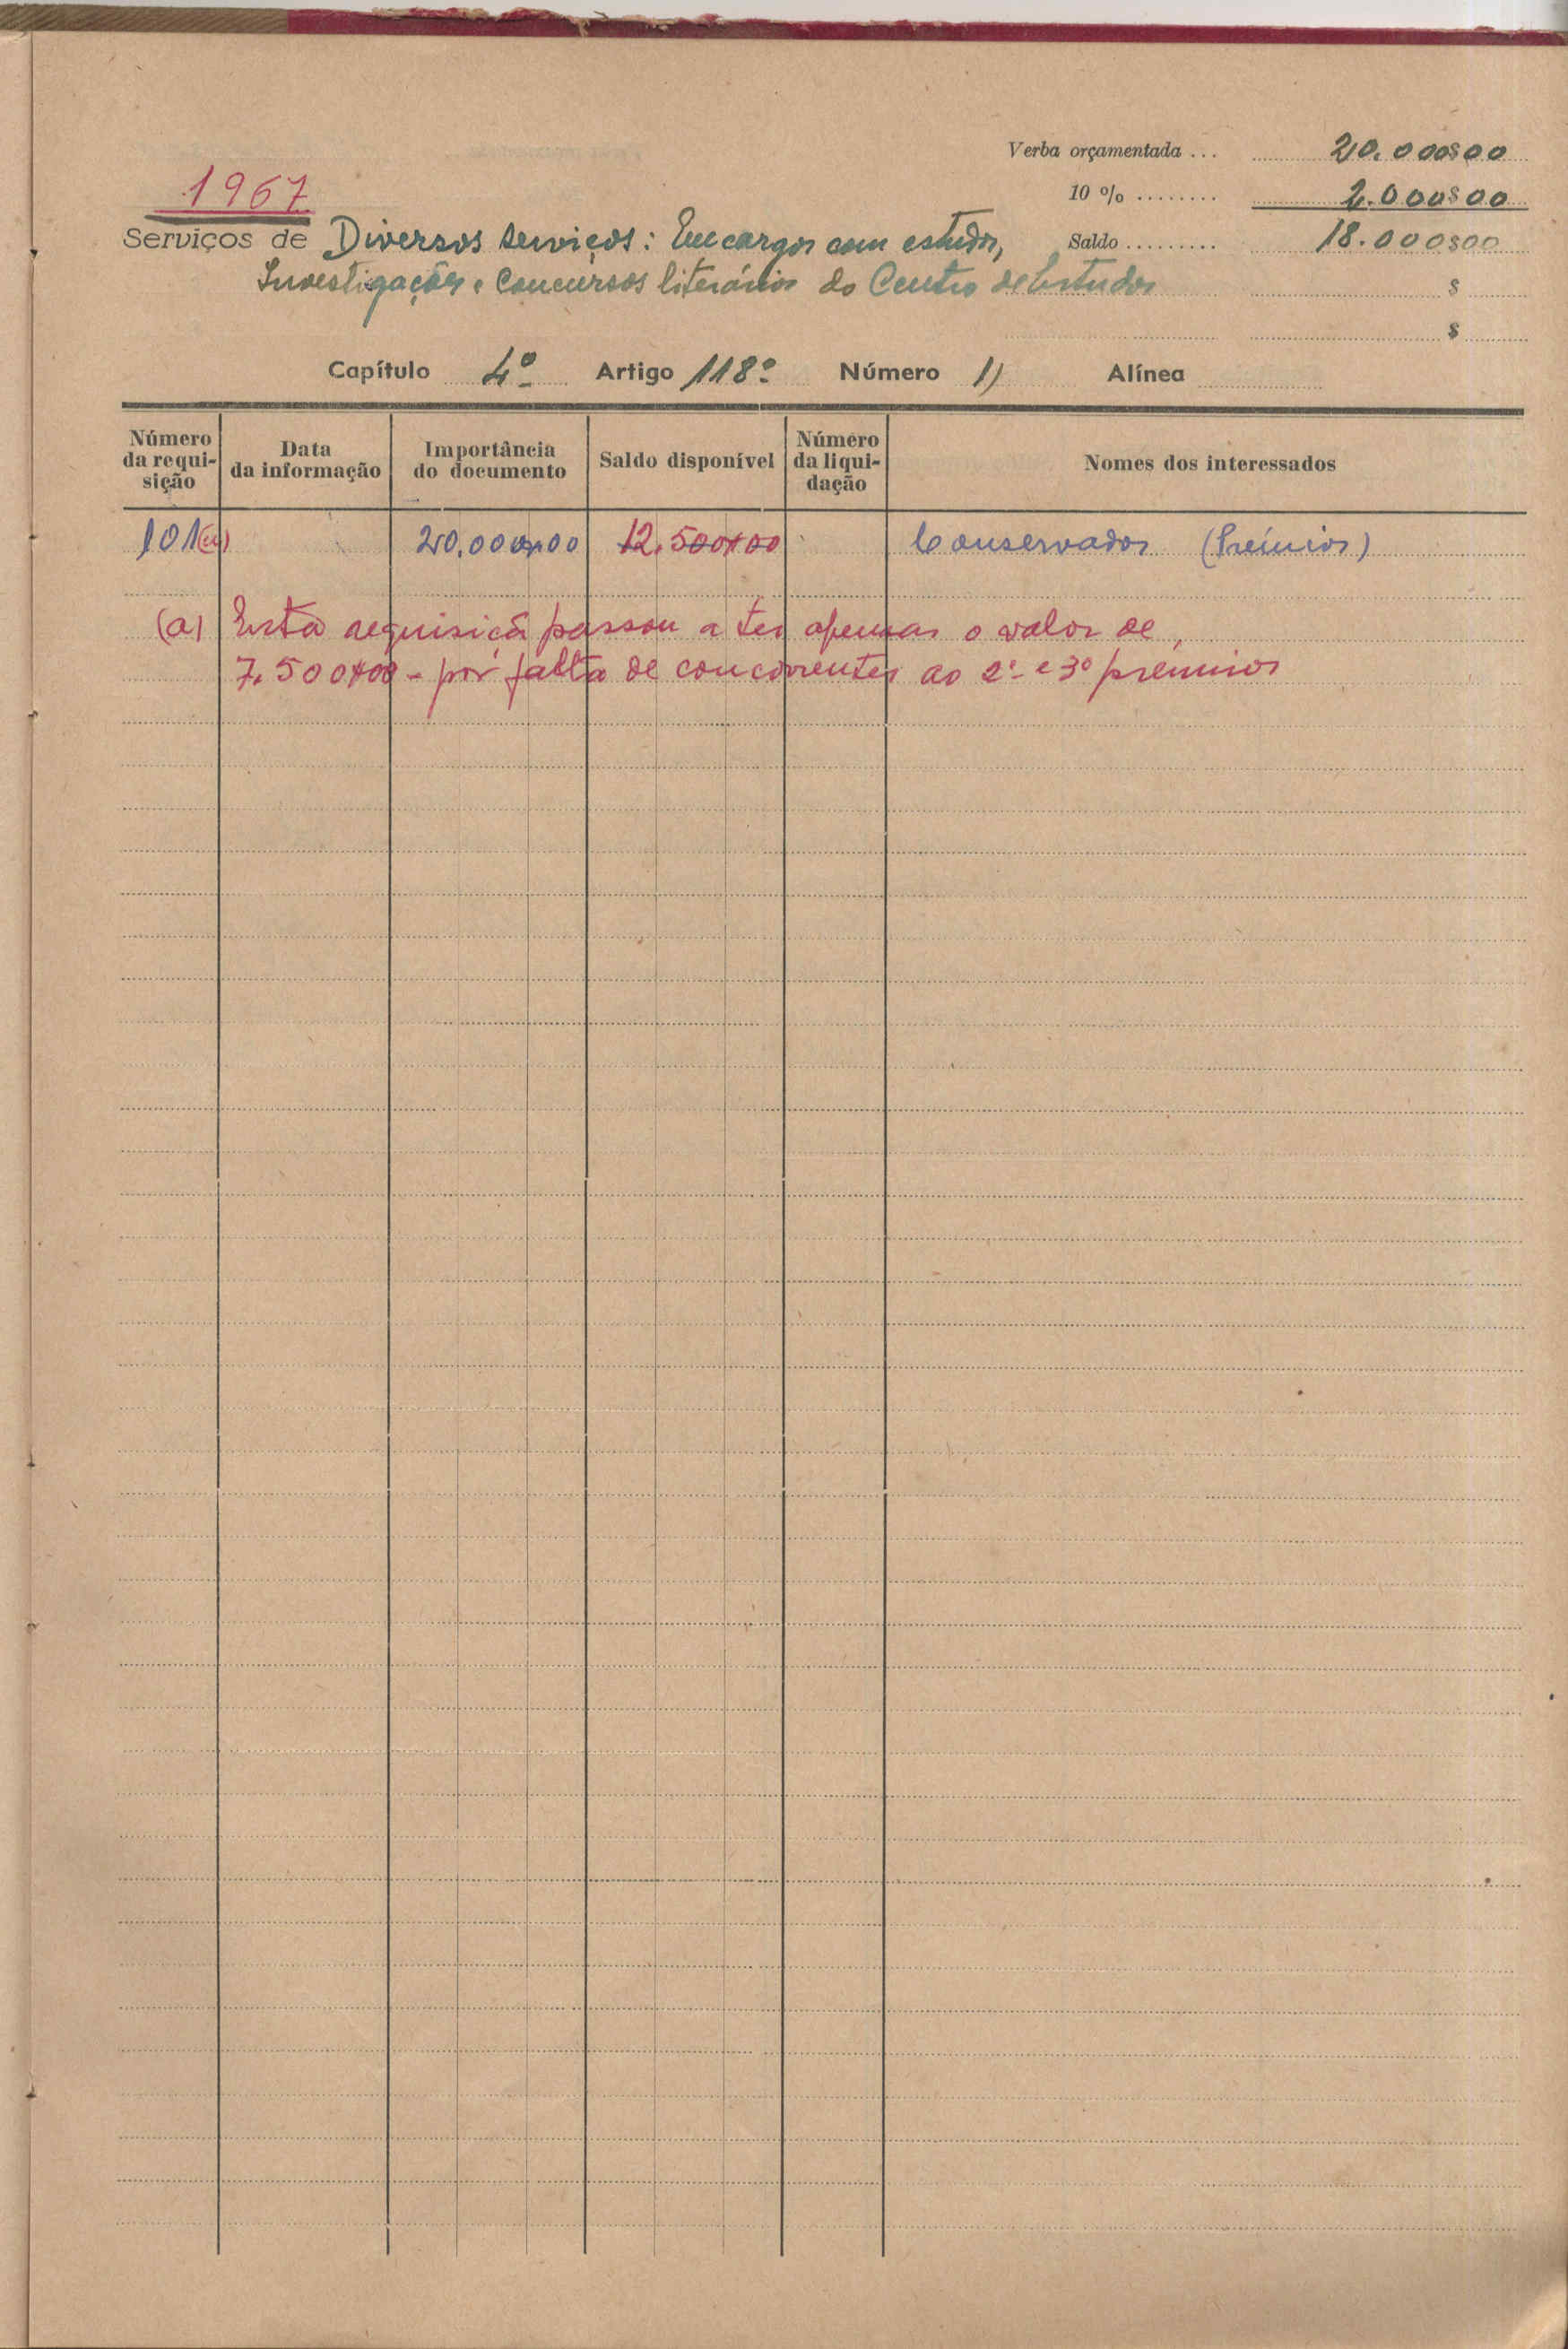 Verba orçamentada ... 20.000$00
1967
10 % ........ 2.000$00
Serviços de Diversos serviços: Encargos com estudos, Saldo ......... 18.000$00
Investigações e Concursos literários do Centro de Estudos $
$
Capítulo 4º Artigo 118º Número 1) Alínea
Número da requi-sição Data da informação Importância do documento Saldo disponível Número da liqui-dação Nomes dos interessados
101(a) 20.000$00 12.500$00 Conservador (Prémios)
(a) Esta requisiçã passou a ter apenas o valor de
7.500$00 - por falta de concorrentes ao 2º e 3º prémios